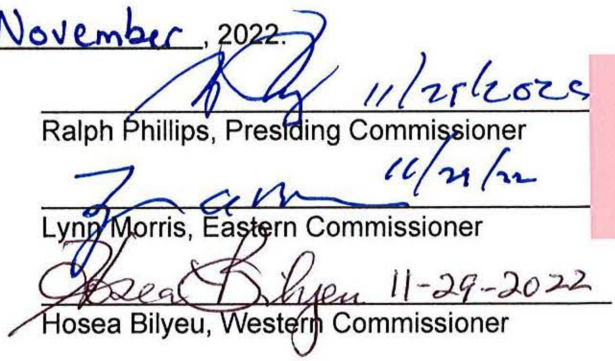 November, 2022.
11/29/2022
Ralph Phillips, Presiding Commissioner
11/29/22
Lynn Morris, Eastern Commissioner
Hosea Bilyeu 11-29-2022
Hosea Bilyeu, Western Commissioner